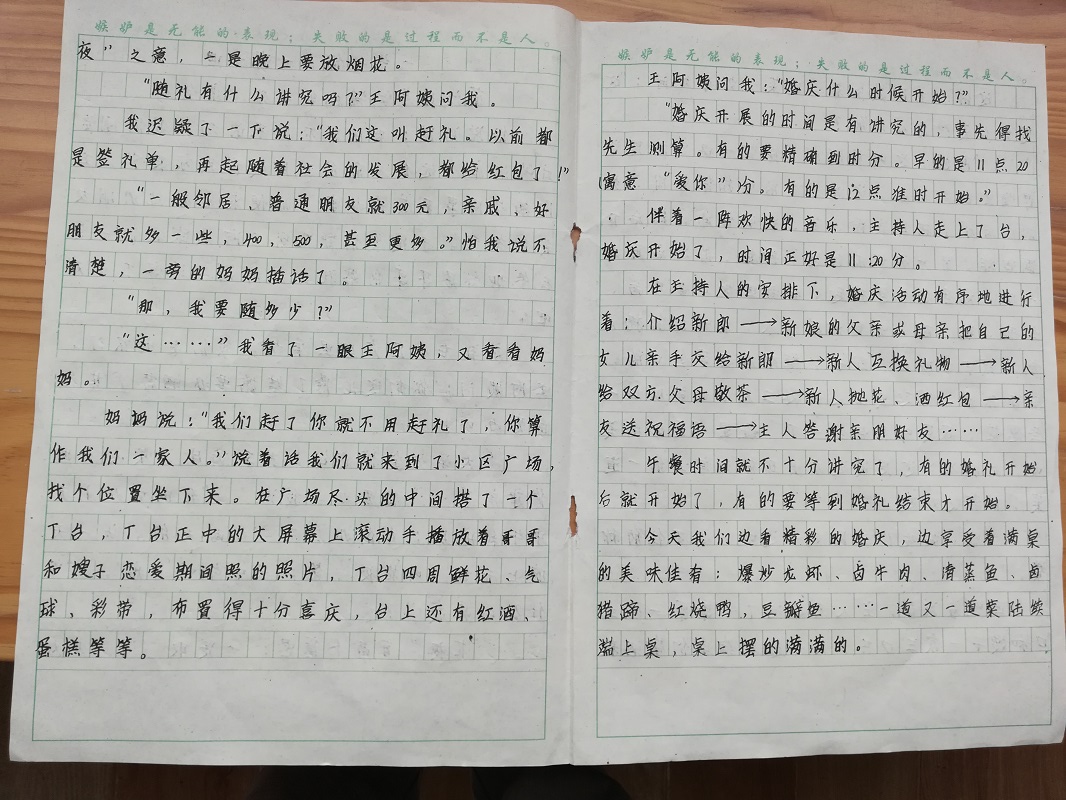 嫉妒是无能的表现；失败的是过程而不是人。
夜”之意，二是晚上要放烟花。
“随礼有什么讲究吗？”王阿姨问我。
我迟疑了一下说：“我们这叫赶礼。以前都
是签礼单，再起随着社会的发展，都给红包了！”
“一般邻居、普通朋友就300元，亲戚、好
朋友就多一些，400，500，甚至更多。”怕我说不
清楚，一旁的妈妈插话了。
“那，我要随多少？”
“这……”我看了一眼王阿姨，又看看妈
妈。
妈妈说：“我们赶了你就不用赶礼了，你算
作我们一家人。”说着话我们就来到了小区广场，
找个位置坐下来。在广场尽头的中间搭了一个
丁台，丁台正中的大屏幕上滚动手播放着哥哥
和嫂子恋爱期间照的照片，丁台四周鲜花、气
球、彩带，布置得十分喜庆，台上还有红酒、
蛋糕等等。
嫉妒是无能的表现；失败的是过程而不是人。
王阿姨问我：“婚庆什么时候开始？”
“婚庆开展的时间是有讲究的，事先得找
先生测算。有的要精确到时分。早的是11点20
（寓意“爱你”）分。有的是12点准时开始。”
伴着一阵欢快的音乐，主持人走上了台，
婚庆开始了，时间正好是11:20分。
在主持人的安排下，婚庆活动有序地进行
着：介绍新郎——→新娘的父亲或母亲把自己的
女儿亲手交给新郎——→新人互换礼物——→新人
给双方父母敬茶——→新人抛花、洒红包——→亲
友送祝福语——→主人答谢亲朋好友……
午餐时间就不十分讲究了，有的婚礼开始
后就开始了，有的要等到婚礼结束才开始。
今天我们边看精彩的婚庆，边享受着满桌
的美味佳肴：爆炒龙虾、卤牛肉、清蒸鱼、卤
猪蹄、红烧鸭，豆瓣鱼……一道又一道菜陆续
端上桌，桌上摆的满满的。